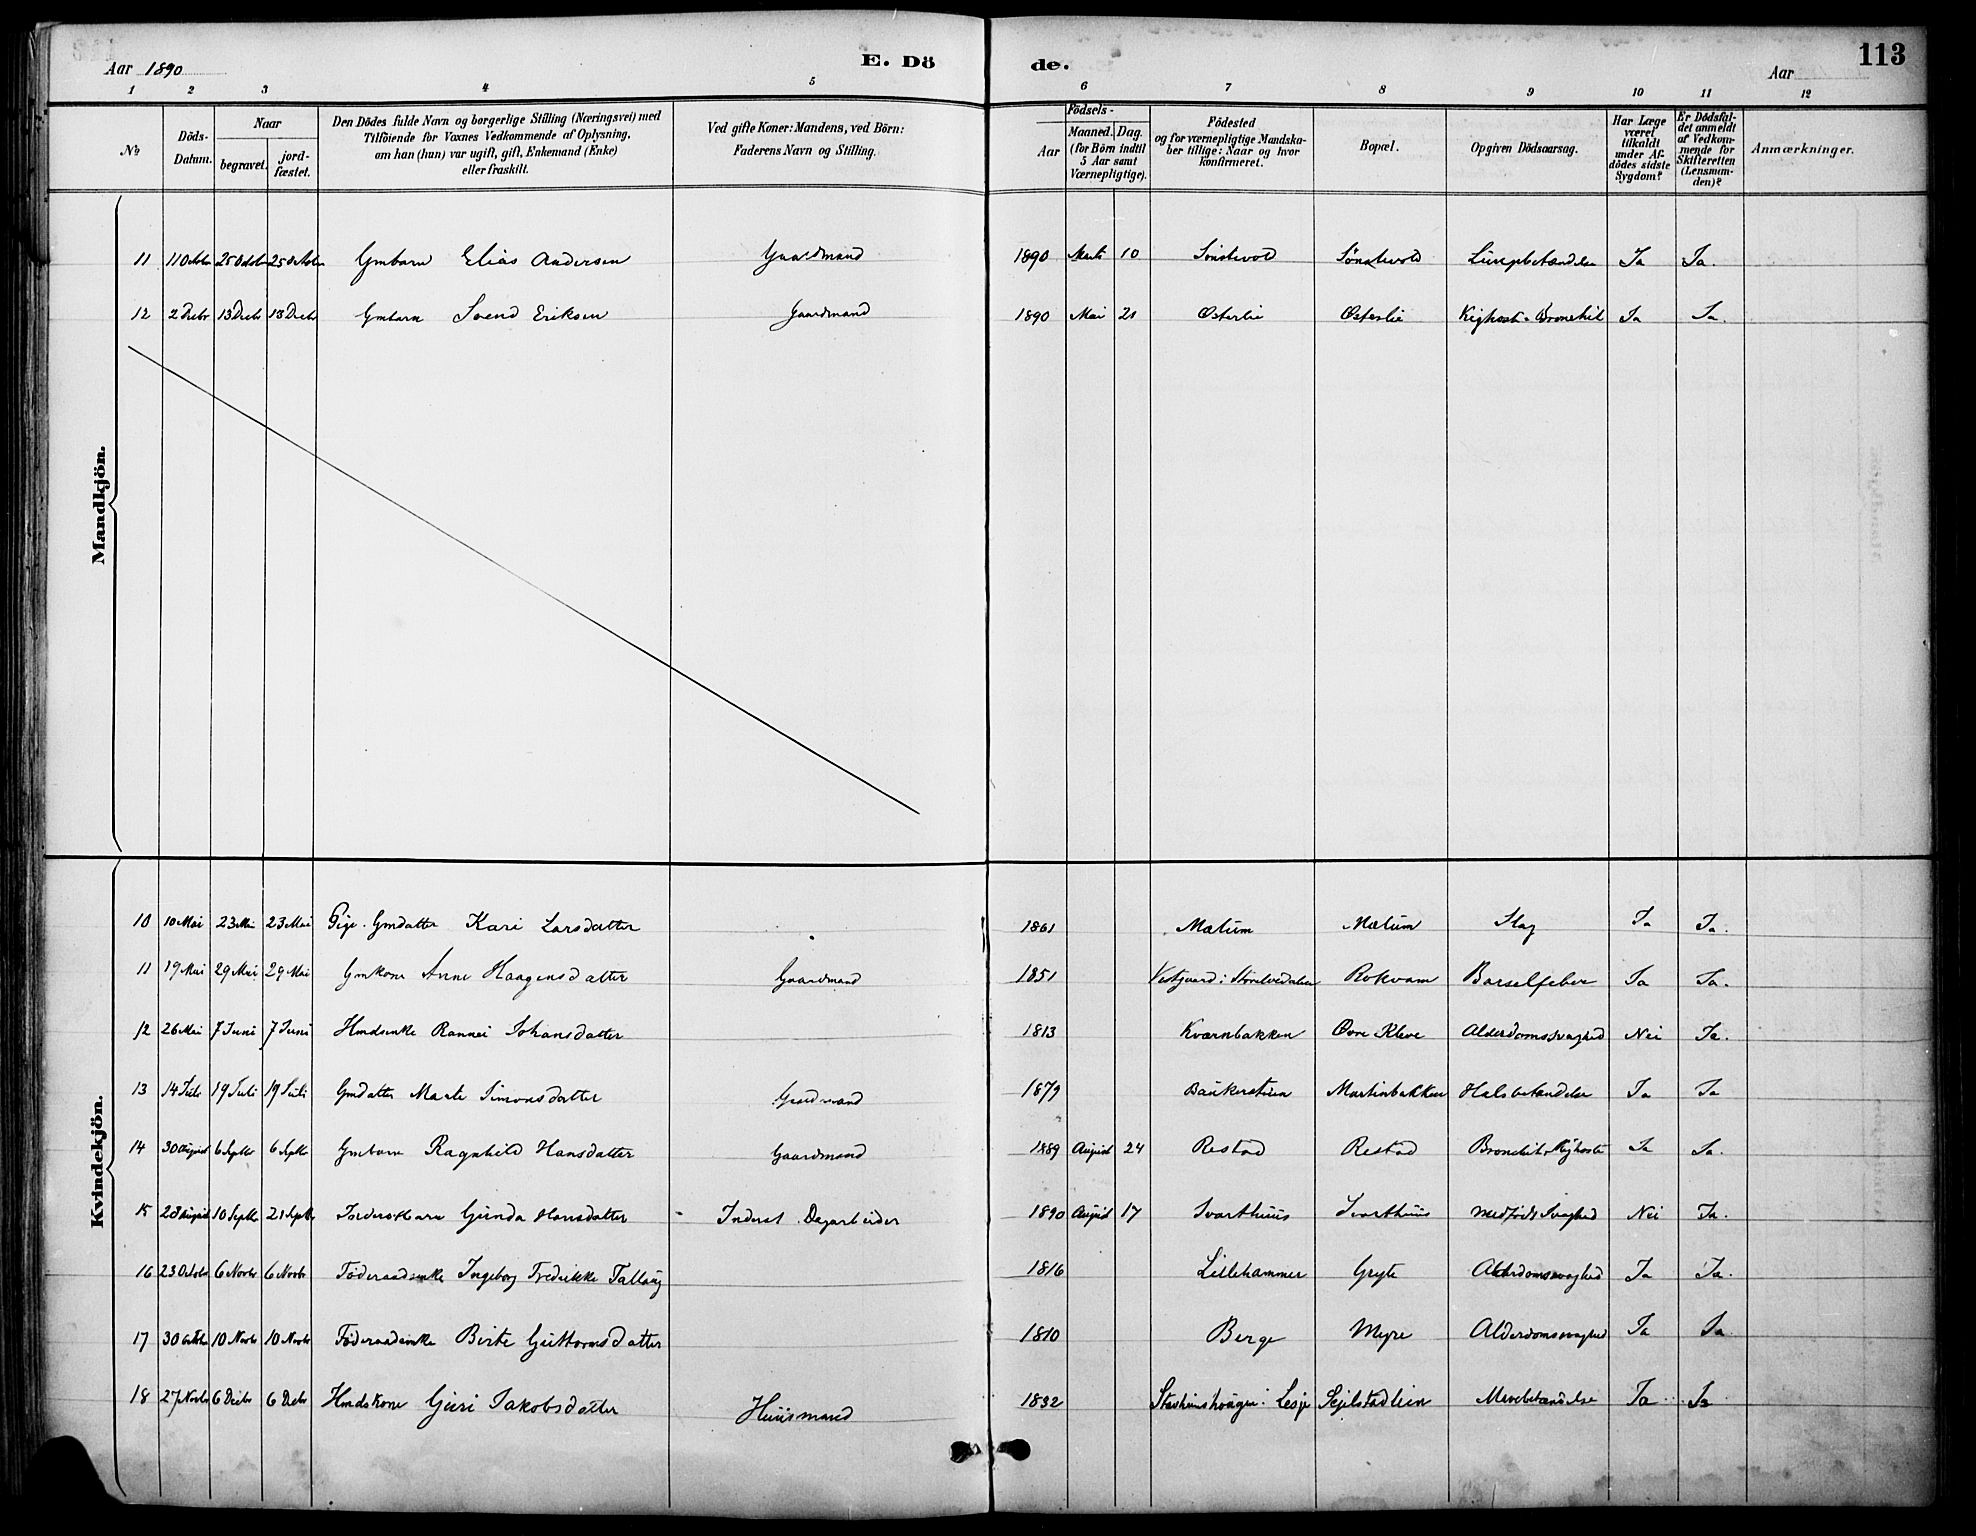 Aar 1890
E. Dö
de.
Aar
113
1 2 3 4 5 6 7 8 9 10 11 12
№
Döds-
Datum.
Naar
begravet.
jord-
fæstet.
Den Dödes fulde Navn og borgerlige Stilling (Næringsvei) med
Tilföiende for Voxnes Vedkommende af Oplysning,
om han (hun) var ugift, gift, Enkemand (Enke)
eller fraskilt.
Ved gifte Koner: Mandens, ved Börn:
Faderens Navn og Stilling.
Födsels-
Aar
Maaned. Dag.
(for Börn indtil
5 Aar samt
Værnepligtige).
Födested
og for værnepligtige Mandska-
ber tillige: Naar og hvor
konfirmeret.
Bopæl.
Opgiven Dödsaarsag.
Har Læge
været
tilkaldt
under Af-
dödes sidste
Sygdom?
Er Dödsfal-
det anmeldt
af Vedkom-
mende for
Skifteretten
(Lensman-
den)?
Anmærkninger.
Mandkjön.
11 11 Octobr 25 Octobr 25 Octobr Gmbarn Elias Andersen Gaardmand 1890 Marts 10 Sönstevold Sønstevold Lungebetændelse Ja Ja.
12 2 Decbr 13 Decbr 13 Decbr Gmbarn Svend Eriksen Gaardmand 1890 Mai 21 Østerlie Østerlie Kighoste Bronchit Ja Ja.
Kvindekjön.
10 10 Mai 23 Mai 23 Mai Pige Gmdatter Kari Larsdatter 1861 Mælum Mælum Slag Ja Ja.
11 19 Mai 29 Mai 29 Mai Gmkone Anne Haagensdatter Gaardmand 1851 Vestgaard i Rokvam Barselfeber Ja Ja.
12 26 Mai 7 Juni 7 Juni Hmdsenke Rannei Johansdatter 1813 Kværnbakken Øvre Kleve Alderdomssvaghed Nei Ja.
13 14 Juli 19 Juli 19 Juli Gmdatter Marte Simonsdatter Gaardmand 1879 Martinbakken Halsbetændelse Ja Ja
14 30 August 6 Septbr 6 Septbr Gmbarn Ragnhild Hansdatter Gaardmand 1889 August 24 Restad Restad Bronchit Kighoste Ja Ja.
15 28 August 10 Septbr 21 Septbr Inderstbarn Gunda Hansdatter Inderst Dagarbeider 1890 August 17 Svarthuus Svarthuus Medfødt Svaghed Nei Ja.
16 23 Octobr 6 Novbr 6 Novbr Föderaadsenke Ingeborg Fredrikke Tallaug 1816 Lillehammer Gryte Alderdomssvaghed Ja Ja.
17 30 Octobr 10 Novbr 10 Novbr Föderaadsenke Birte Guttormsdatter 1810 Berge Myre Alderdomssvaghed Ja Ja.
18 27 Novbr 6 Decbr 6 Decbr Hmdskone Guri Jakobsdatter Huusmand 1832 i Lesje Sejelstadlien Mavebetændelse Ja Ja